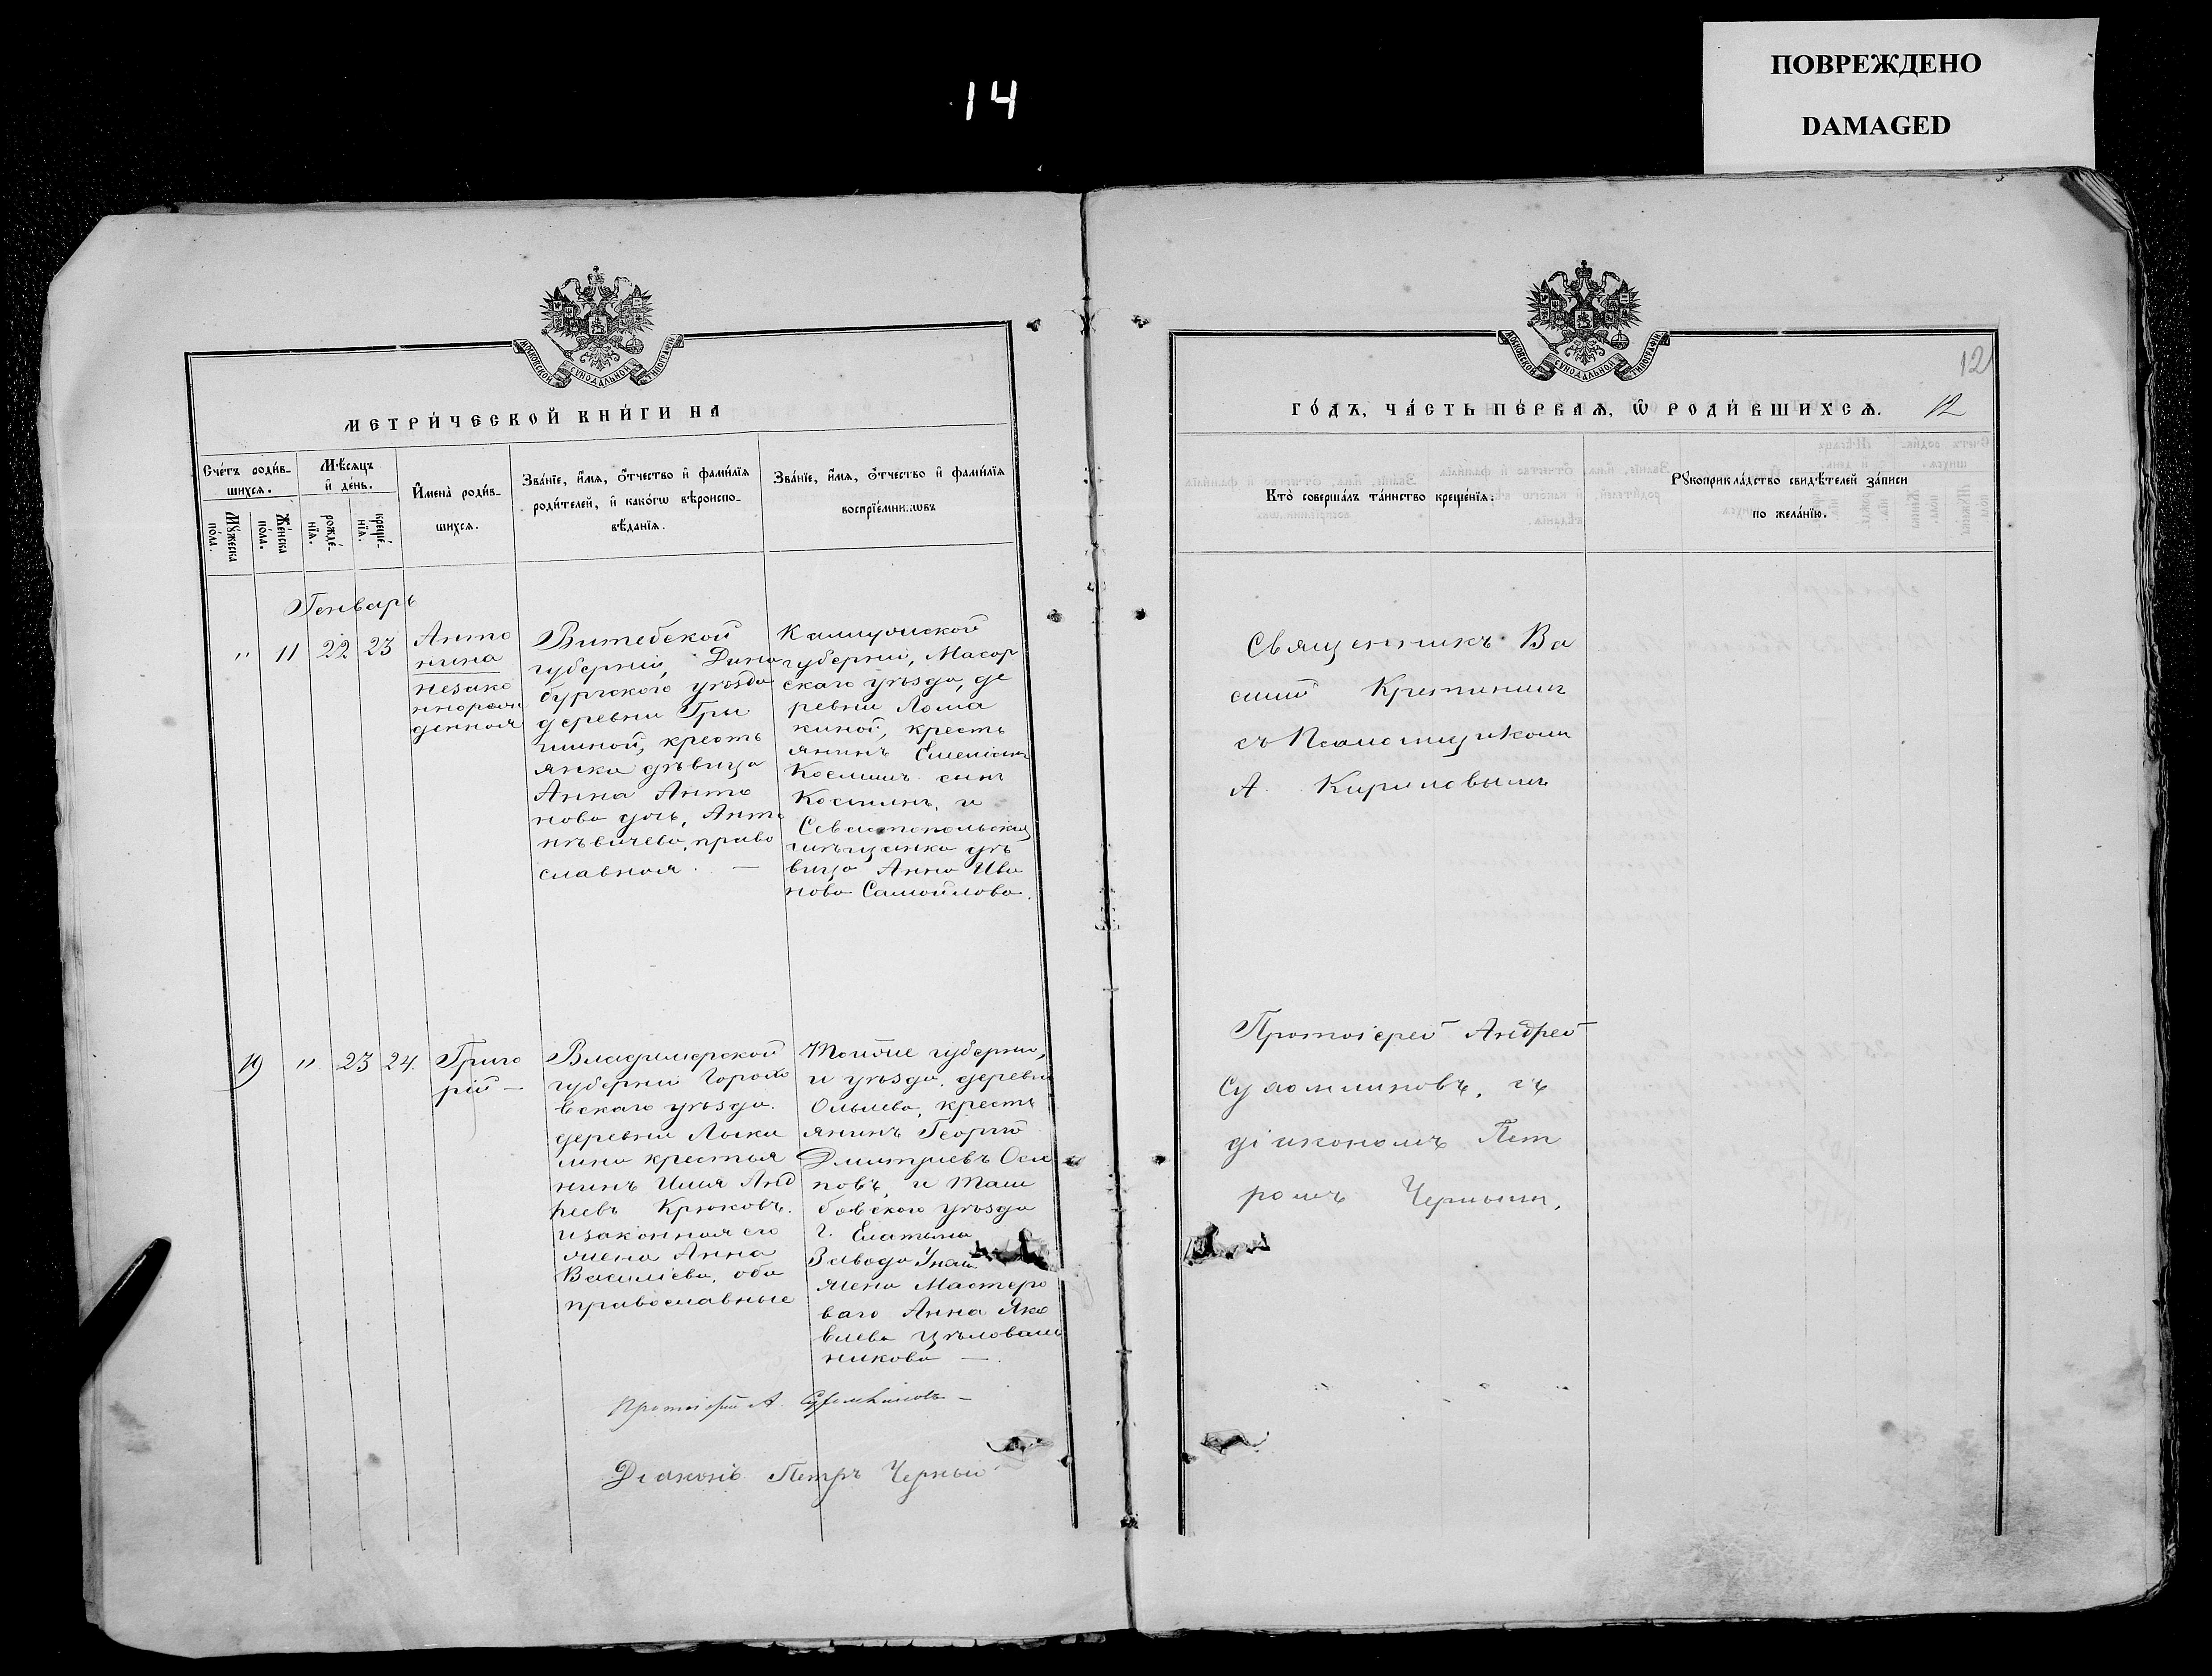 14
ПОВРЕЖДЕНО
DAMAGED
МОСКОВСКОЙ СУНОДАЛЬНОЙ ТИПОГРАФІИ
МЕТРИ́ЧЕСКОЙ КНИ́ГИ НА
Сче́тъ роди́в-
шихсѧ.
Мꙋ́жеска по́ла.
Же́нска по́ла.
Мѣ́сяцъ
и҆ де́нь.
рожде́-
нїѧ.
креще́-
нїѧ.
И҆мена̀ роди́в-
шихсѧ.
Зва́нїе, и҆́мѧ, ѻ҆́тчество и҆ фами́лїѧ
роди́телей, и҆ како́гѡ вѣроиспо-
вѣ́данїѧ.
Зва́нїе, и҆́мѧ, ѻ҆́тчество и҆ фами́лїѧ
воспрїе́мниковъ
Генварь
" 11 22 23
Анто
нина
незако
ннорож
денная
Витебской
губерніи, Дина
бургского уѣзда
деревни Гры
шиной, кресть
янка дѣвица
Анна Анто
нова дочь, Анто
нѣвичева, право
славная. —
губерніи, Масор
скаго уѣзда, де
ревни Лома
киной, кресть
янинъ Емеліанъ
Косминъ сынъ
Косминъ, и
Севастопольская
мѣщанка дѣ
вица Анна Ива
нова Самойлова.
19 " 23 24.
Григо
рій —
Владимерской
губерніи Горохо
вскаго уѣзда.
деревни Лыки
ина крестья
нинъ Илія Анд
реевъ Крюковъ.
и законная его
жена Анна
Василіева, оба
православные
Тойже губерніи,
и уѣзда. деревни
кресть
янинъ Георгій
Дмитріевъ Оси
повъ, и Там
бовского уѣзда
г. Елатьма
Завода
жена Мастеро
ваго Анна Яко
влева Цѣловаль
никова —.
Протоіерей А. Судомниковъ —
Діаконъ Петръ Черный
МОСКОВСКОЙ СУНОДАЛЬНОЙ ТИПОГРАФІИ
12
ГО́ДЪ, ЧА́СТЬ ПЕ́РВАѦ, Ѽ РОДИ́ВШИХСѦ. 12
Кто̀ соверша́лъ та́инство креще́нїѧ:
Рꙋкоприкла́дство свидѣ́телей за́писи
по жела́нїю.
Священникъ Ва
силій Крестининъ
съ Псаломщикомъ
А. Кириловымъ
Протоіерей Андрей
Судомниковъ, съ
діакономъ Пет
ромъ Чернымъ.